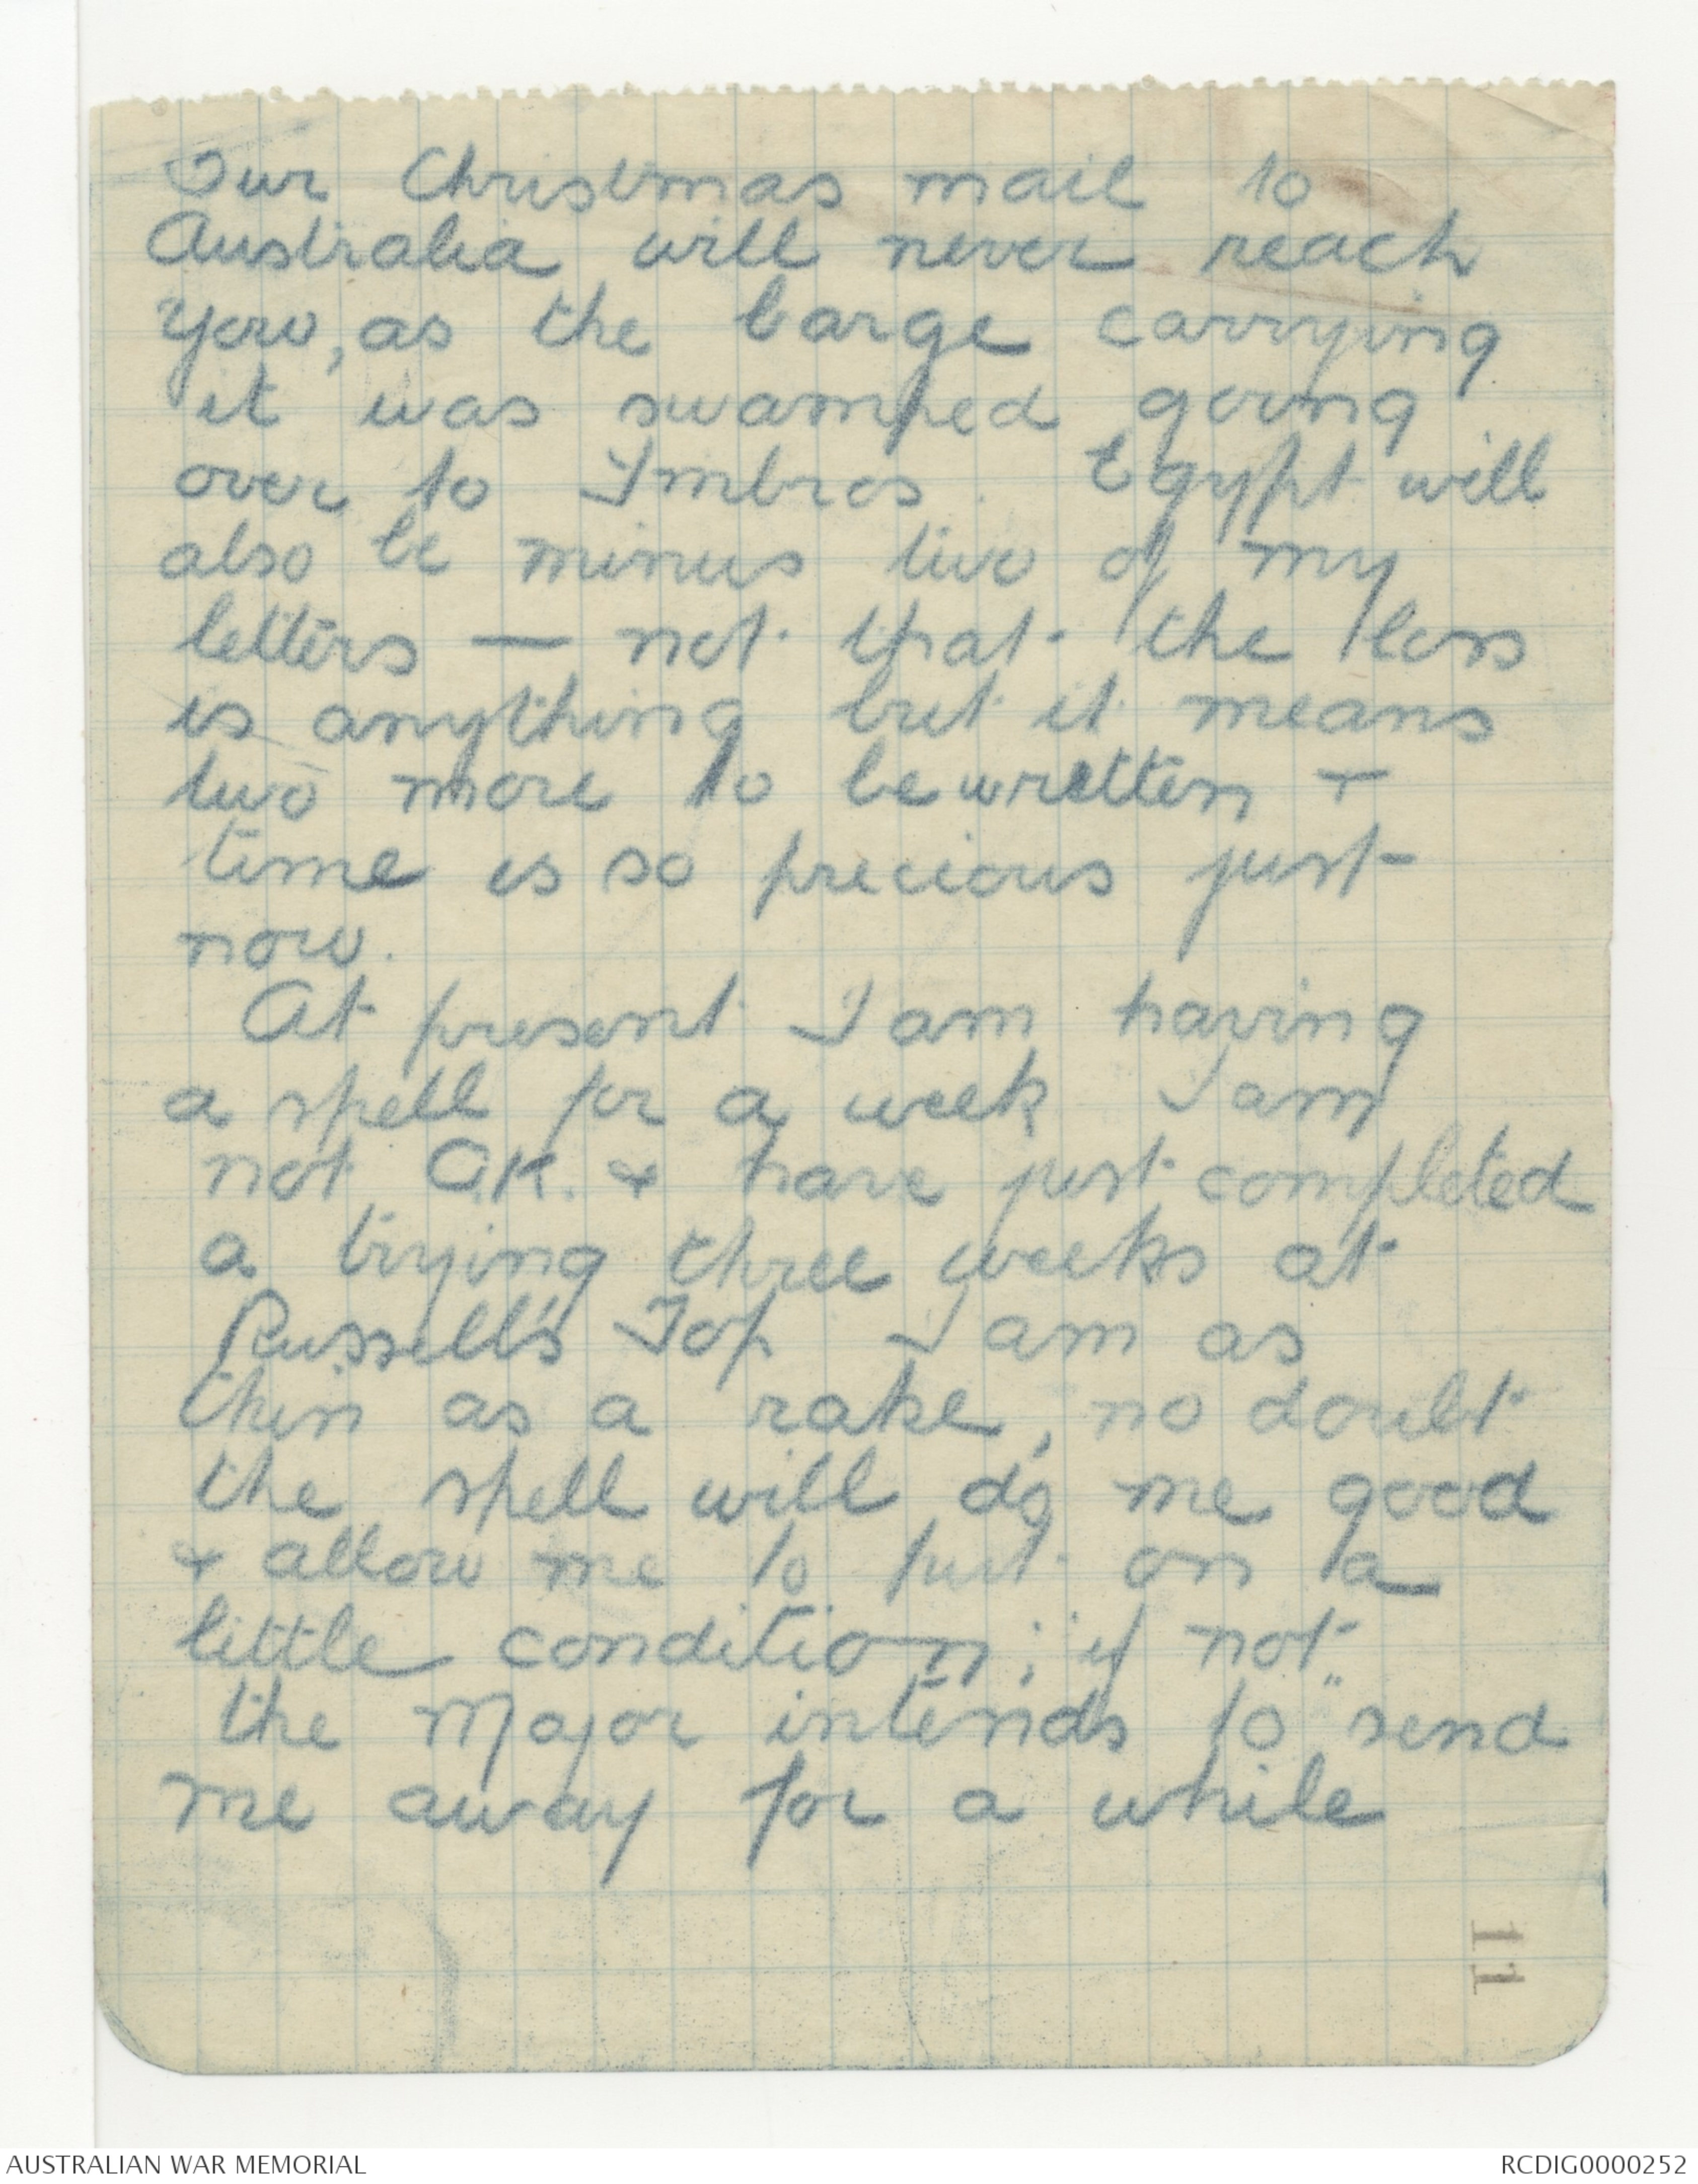 Our Christmas mail to
Australia will never reach
you, as the barge carrying
it was swamped going
over to Imbros. Egypt will
also be minus two of my
letters — not that the loss
is anything but it means
two more to be written +
time is so precious just
now.
At present I am having
a spell for a week I am
not O.K. + have just completed
a trying three weeks at
Russell's Top I am as
thin as a rake, no doubt
the spell will do me good
+ allow me to put on a
little condition; if not
the Major intends to "send
me away for a while
11
AUSTRALIAN WAR MEMORIAL
RCDIG0000252